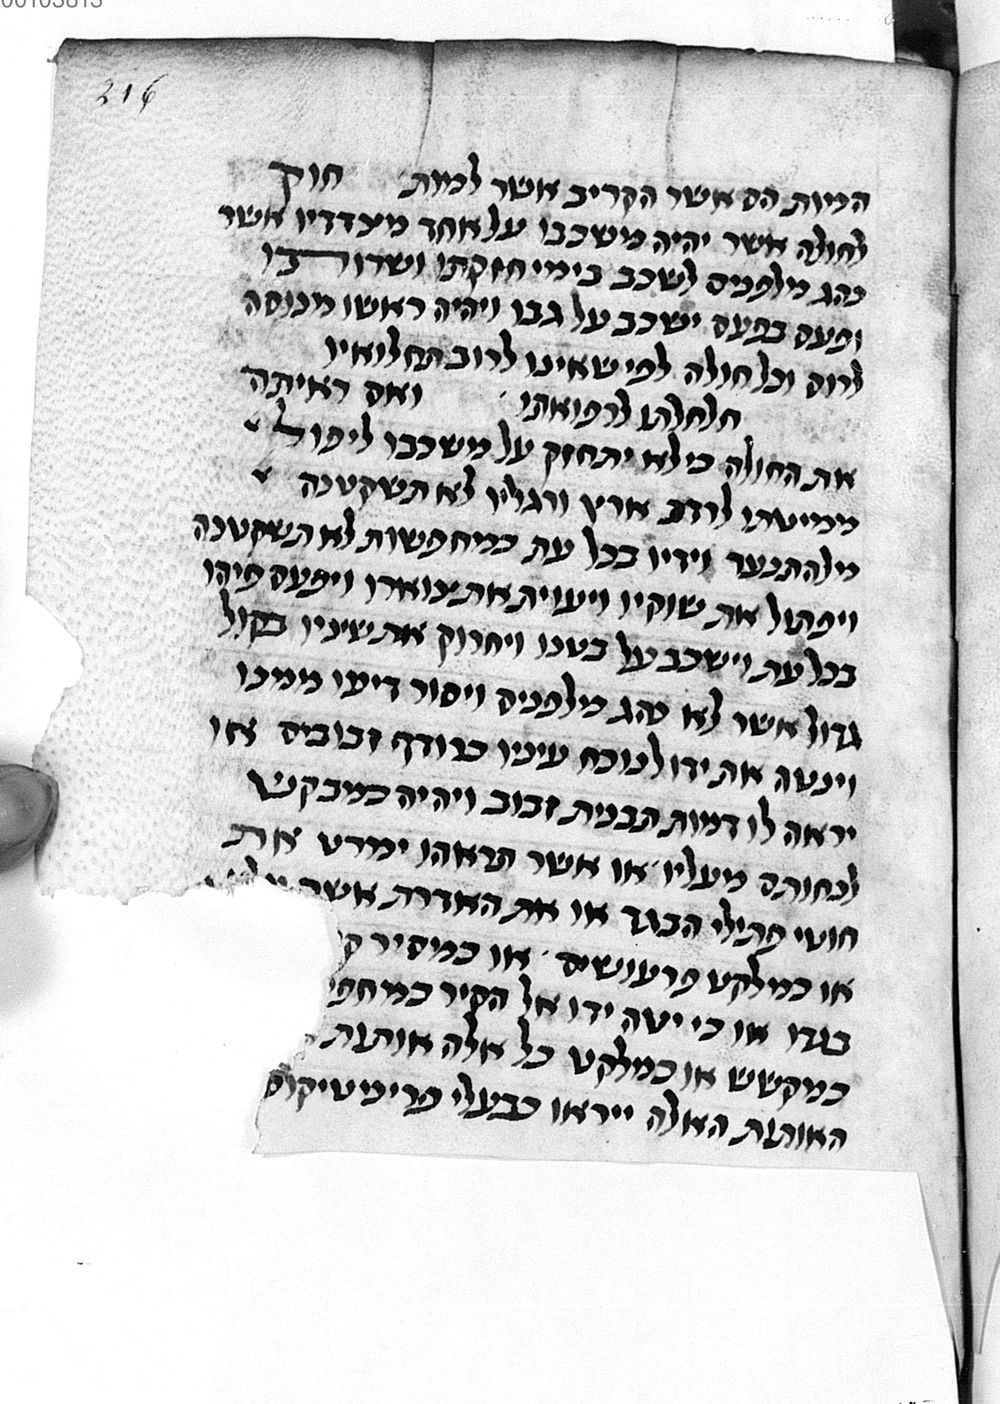 00105813
216
המיות הם אשר הקריב אשר למות חוק
לחולה אשר יהיה משכבו על אחד מצדדיו אשר
נהג מלפנים לשכב בימי חזקתו ושדורבו
ופעם בפעם ישכב על גבו ויהיה ראשו מנוסה
לרום וכל חולה לפי שאינו לרוב תחלואיו
חלחלתו לרפואתו ואם ראיתה
את החולה כי לא יתחזק על משכבו ליפול
ממיטתו לרדת ארץ ורגליו לא תשקטנה
מלהתנער וידיו בכל עת כמחפשות לא תשקטנה
ויפתול את שוקיו ויעוית את צוארו ויפעם פיהו
בכל עת וישכב על בטנו ויחרוק את שיניו בקול
גדול אשר לא נהג מלפנים ויסור דיעו ממנו
וינטה את ידו לנוכח עיניו כרודף זבובים או
יראה לו דמות תבנית זבוב ויהיה כמבקש
לנחותם מעליו או אשר תראהו ימרט את
חוטי פתילי הבגד או את האדרת אשר
או כמלקט פרעושים או כמסיר
בגדו או כי יטה ידו אל הקיר כמחפי
כמקשש או כמלקט כל אלה אותות
האותות האלה ייראו כבעלי פרינטיקוס